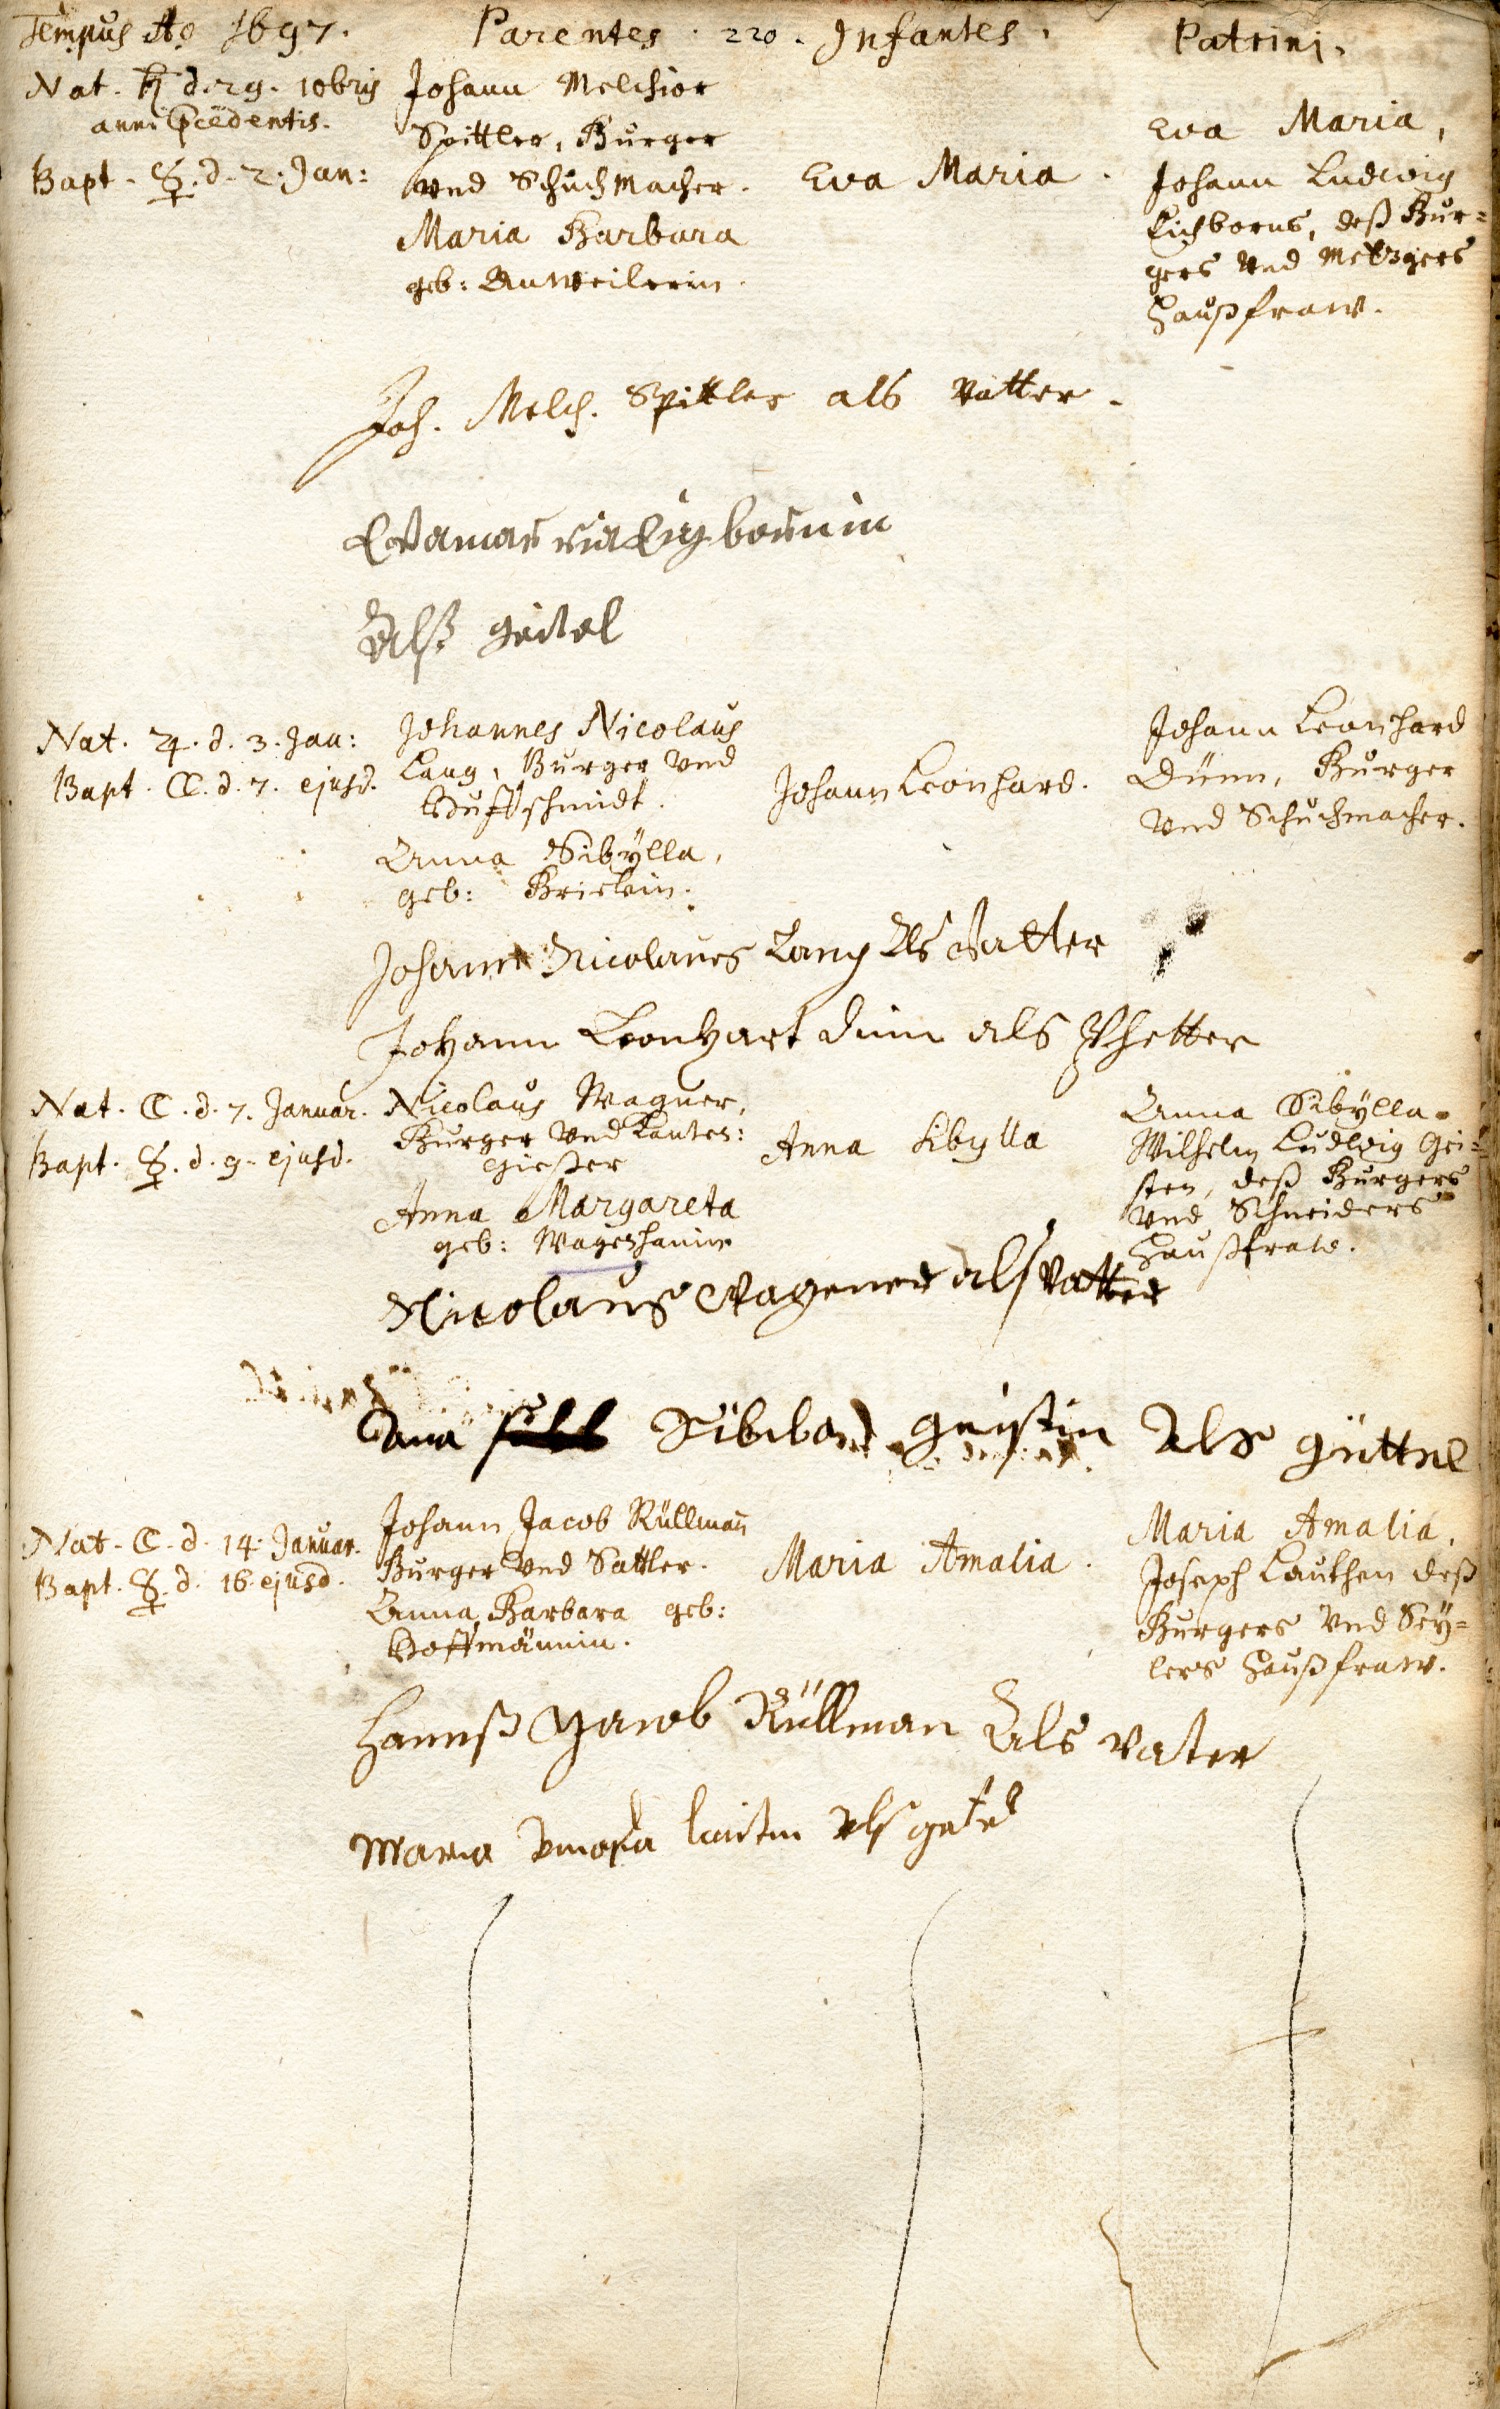 Tempus Aõ 1697.
Parentes. 220. Infantes.
Patrini.
Nat. ♄ d. 29. 10bris
anni p̃cedentis.
Bapt. ☿. d. 2. Jan:
Johann Melchior
Spittler, Burger
vnd Schuchmacher.
Maria Barbara
geb: Anweilerin.
Eva Maria.
Eva Maria,
Johann Ludwig
Eichborns, deß Bur=
gers vnd Metzgers
Haußfraw.
Joh. Melch. Spittler als Vatter.
Evamaria Eigbornin
Alß
Nat. ♃. d. 3. Jan:
Bapt. ☾. d. 7. ejusd.
Johannes Nicolaus
Lang, Burger vnd
Huffschmidt.
Anna Sibÿlla,
geb:
Johann Leonhard.
Johann Leonhard
Dünn, Burger
vnd Schuchmacher.
Johann Nicolaus Lang Als Vatter
Johann Leonhart Dün als Phetter
Nat. ☾. d. 7. Januar.
Bapt. ☿. d. 9. ejusd.
Nicolaus Wagner,
Burger vnd Kanten:
gießer
Anna Margareta
geb:
Anna Sibylla
Anna Sibÿlla
Wilhelm Ludwig Gei=
sten, deß Burgers
vnd Schneiders
Haußfraw.
Nicolaus Wagener als Vatter
geistin Als
Nat. ☾. d. 14. Januar.
Bapt. ☿. d. 16. ejusd.
Johann Jacob Rüllman̄
Burger vnd Sattler.
Anna Barbara geb:
Hoffmännin.
Maria Amalia.
Maria Amalia,
Joseph Lauthen deß
Burgers vnd Seÿ=
lers Haußfraw.
Hannß Jacob Rüllman Als Vater
Maria als